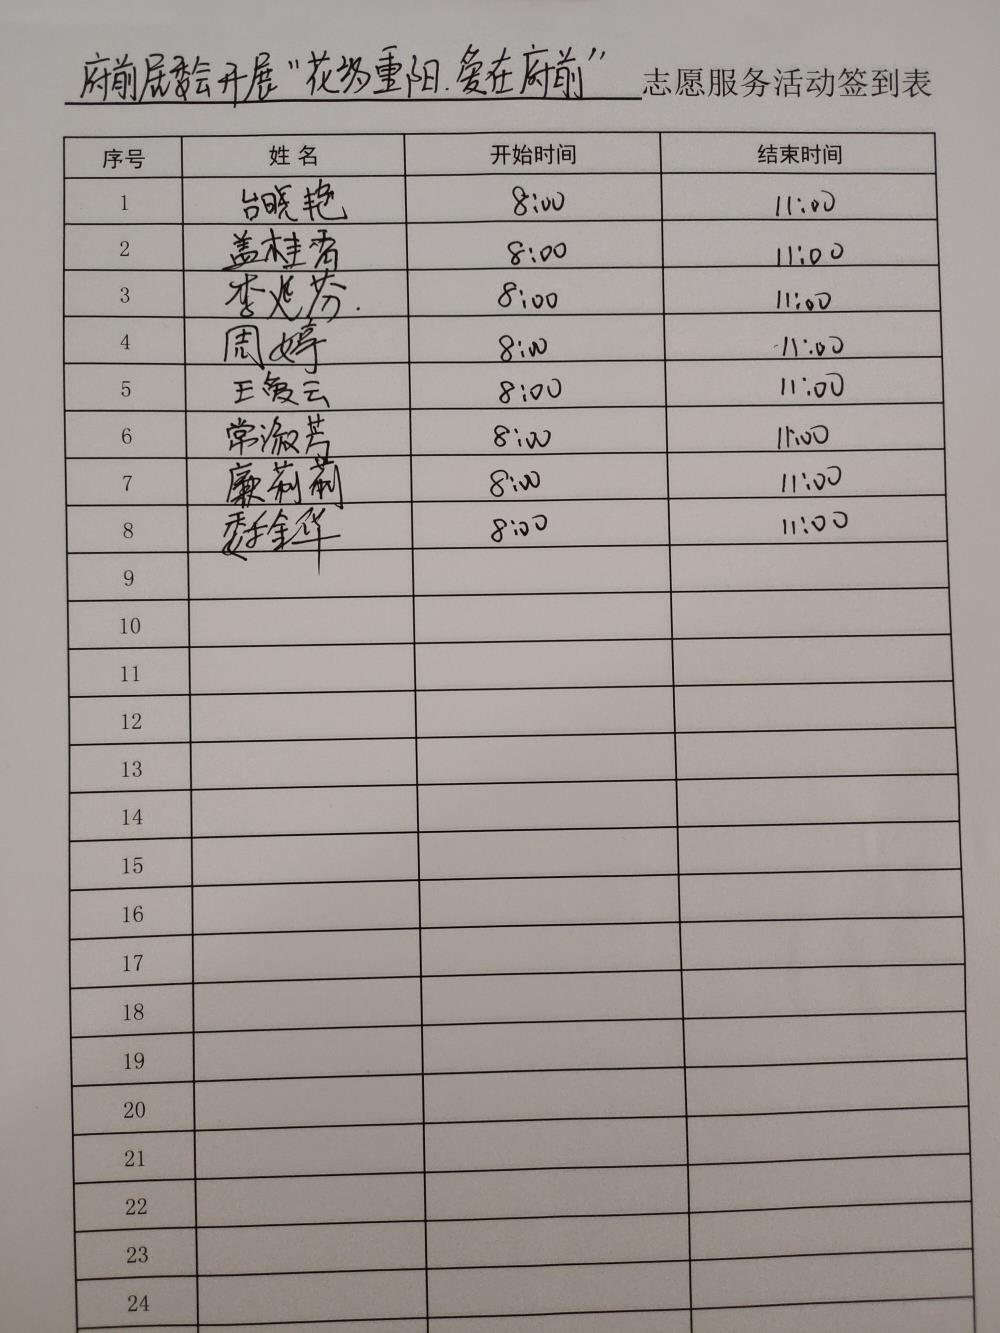 府前居委会开展“花物重阳.爱在府前” 志愿服务活动签到表
序号 姓名 开始时间 结束时间
1 台晓艳 8:00 11:00
2 盖桂香 8:00 11:00
3 李兆芬. 8:00 11:00
4 周婷 8:00 11:00
5 王爱云 8:00 11:00
6 常淑芳 8:00 11:00
7 廉莉莉 8:00 11:00
8 金华 8:00 11:00
9
10
11
12
13
14
15
16
17
18
19
20
21
22
23
24